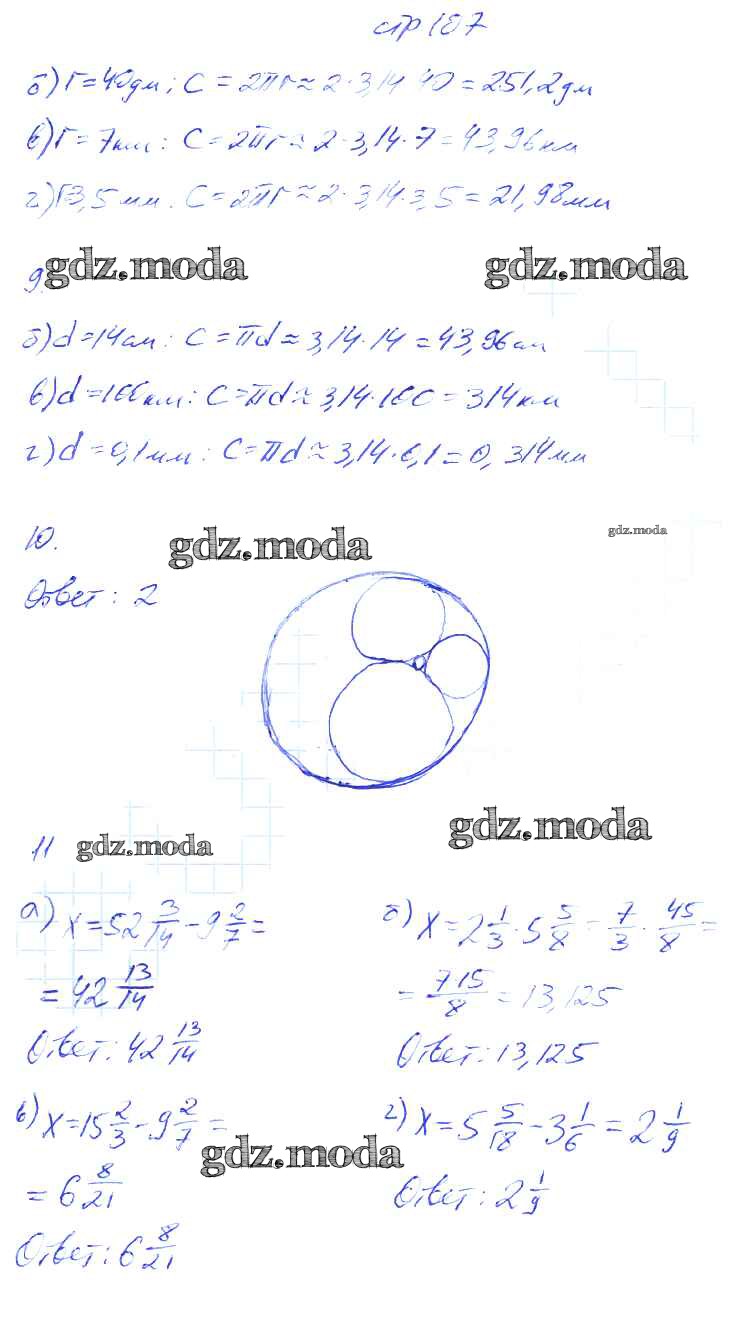 стр 187
б) r=40дм; C = 2πr ≈ 2·3,14·40 = 251,2дм
в) r=7км: C = 2πr ≈ 2·3,14·7 = 43,96км
г) r=3,5мм. C = 2πr ≈ 2·3,14·3,5 = 21,98мм
gdz.moda gdz.moda
9.
б) d=14см: C = πd ≈ 3,14·14 = 43,96см
в) d=100км: C = πd ≈ 3,14·100 = 314км
г) d=0,1мм: C = πd ≈ 3,14·0,1 = 0,314мм
10. gdz.moda gdz.moda
Ответ: 2
11 gdz.moda gdz.moda
а) x = 52 3/14 - 9 2/7 =
= 42 13/14
Ответ: 42 13/14
б) x = 2 1/3 · 5 5/8 = 7/3 · 45/8 =
= 7·15/8 = 13,125
Ответ: 13,125
в) x = 15 2/3 - 9 2/7 =
gdz.moda
= 6 8/21
Ответ: 6 8/21
г) x = 5 5/18 - 3 1/6 = 2 1/9
Ответ: 2 1/9